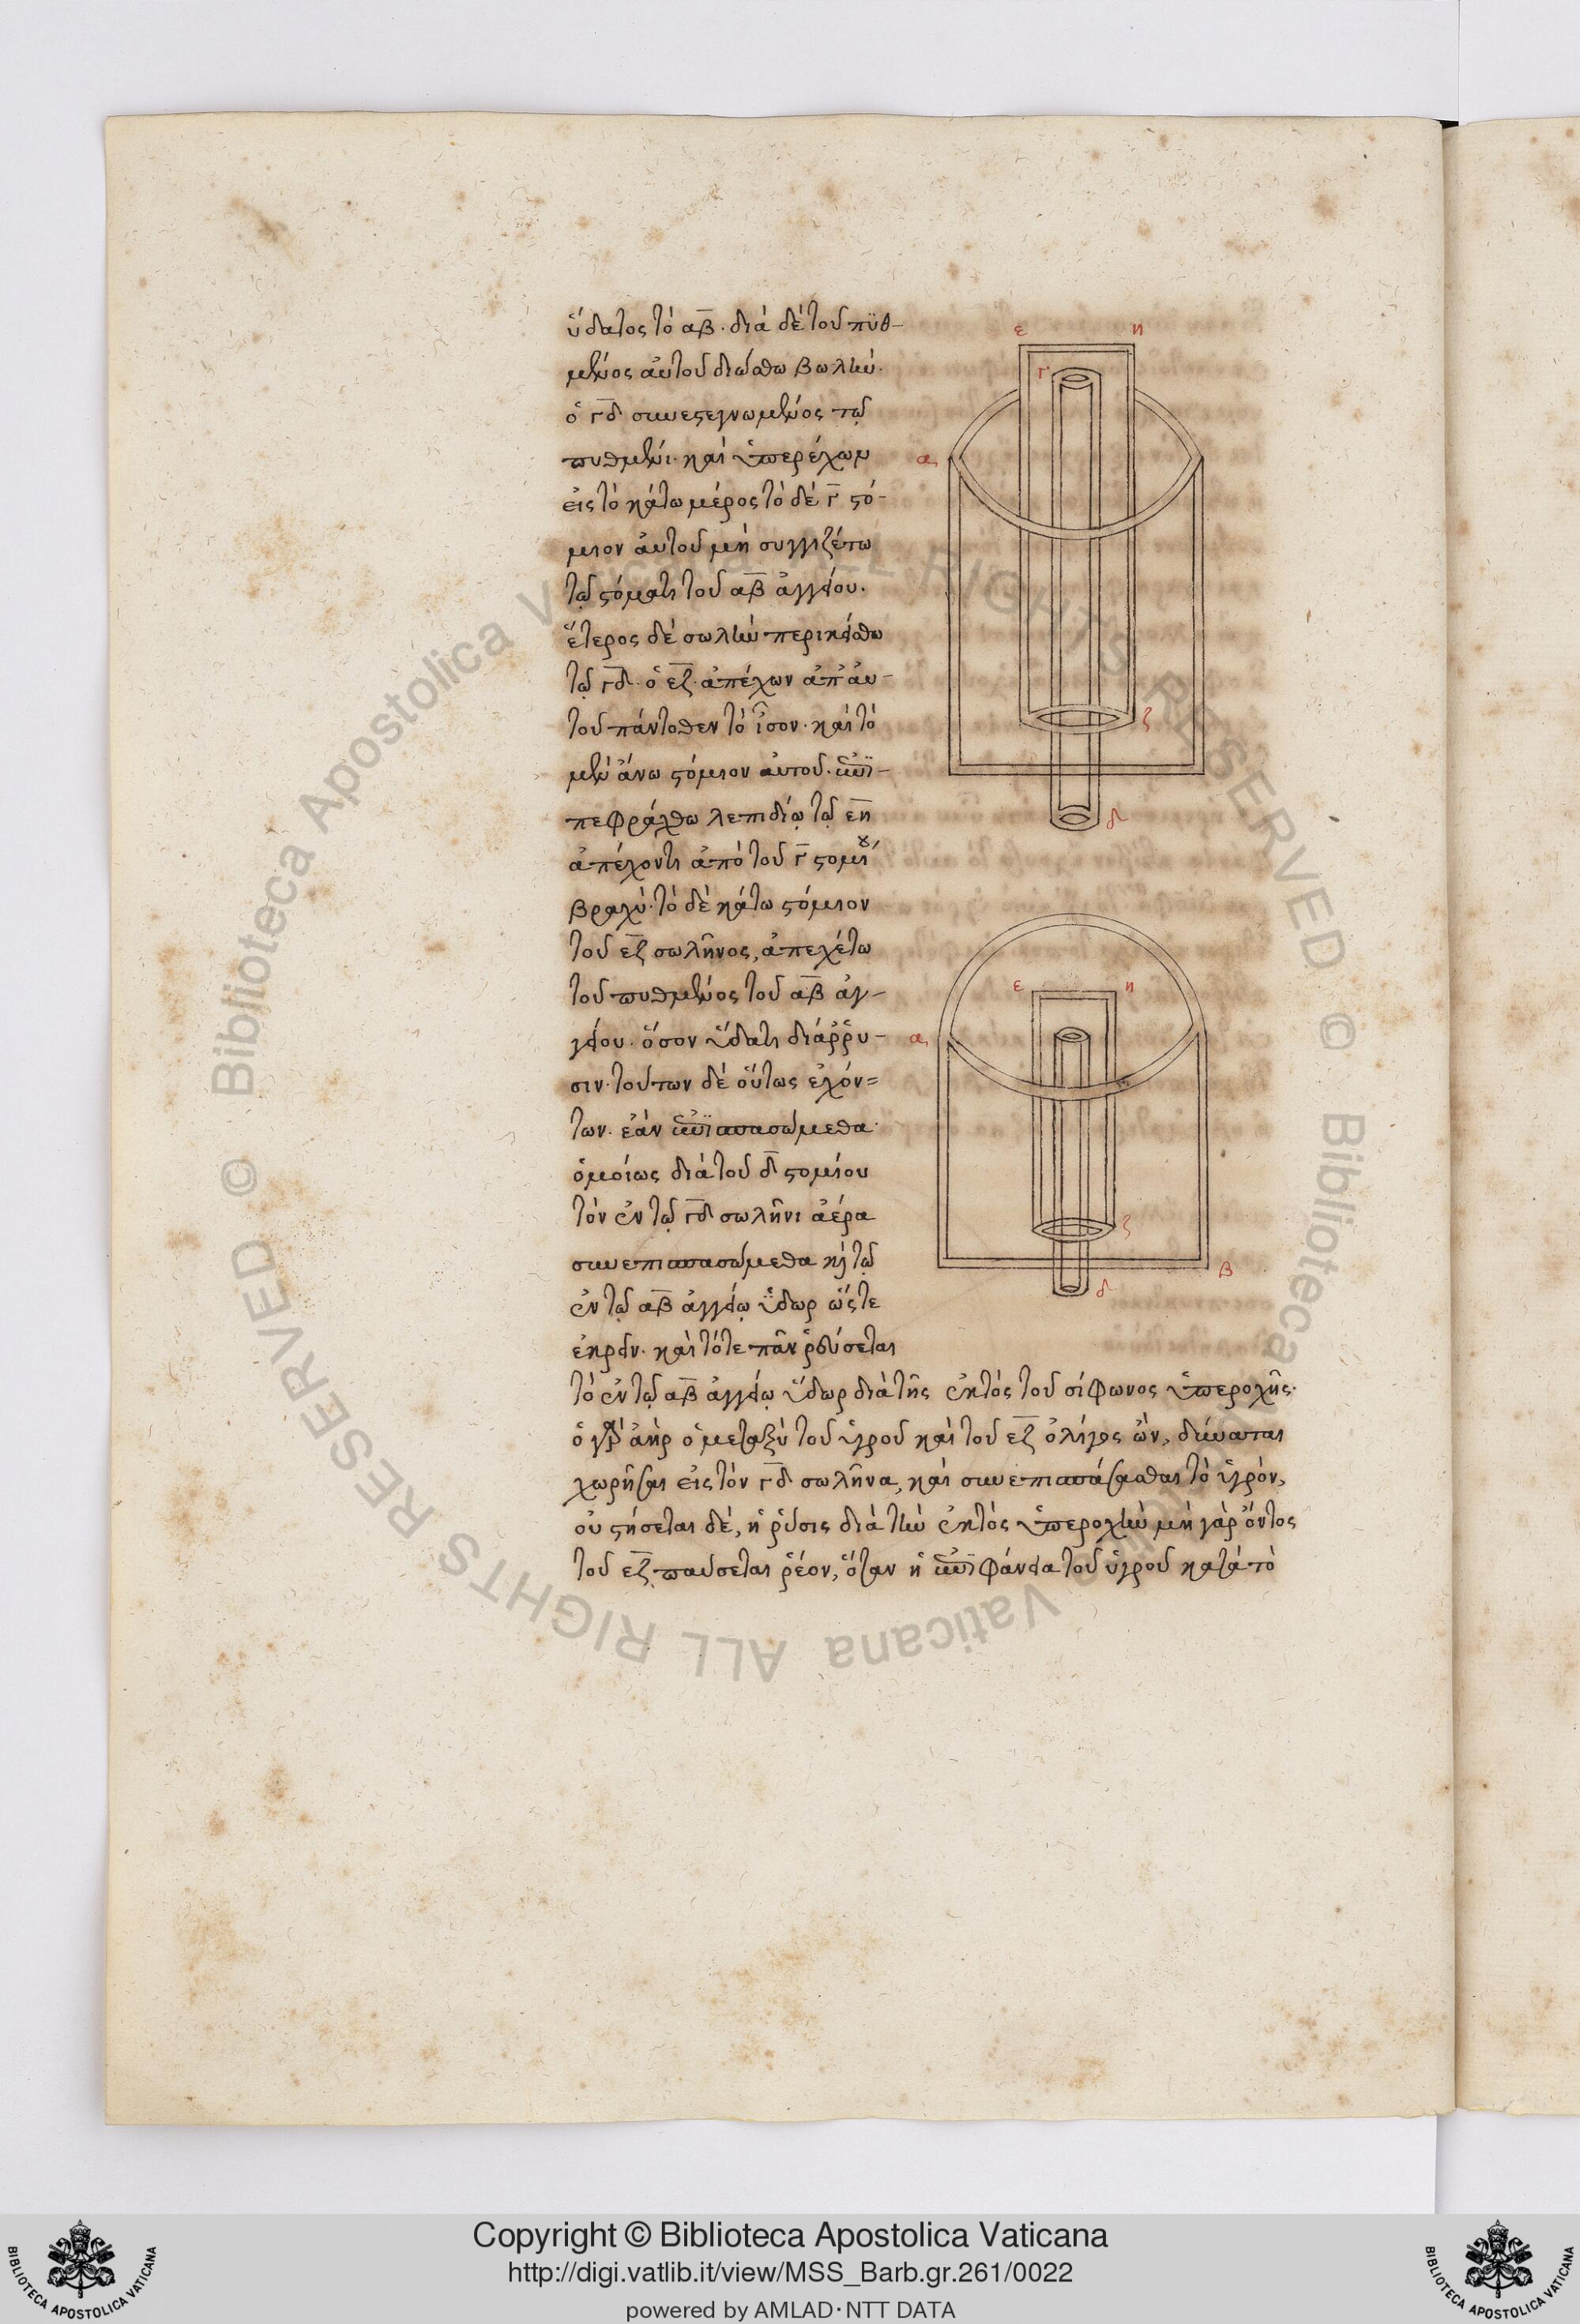 ὕδατος τὸ αβ· διὰ δὲ τοῦ πϋθ-
μένος αὐτοῦ διώσθω βωλὴν·
ὁ γδ συνεστεγνωμένος τῷ
πυθμένι· καὶ ὑπερέχων
εἰς τὸ κάτω μέρος τὸ δὲ γ στό-
μιον αὐτοῦ μὴ συγγιζέτω
τῷ στόματι τοῦ αβ ἀγγείου·
ἕτερος δὲ σωλὴν περικείσθω
τῷ γδ· ὁ εζ· ἀπέχων ἀπ' αὐ-
τοῦ πάντοθεν τὸ ἶσον· καὶ τὸ
μὲν ἄνω στόμιον αὐτοῦ· ἐπι-
πεφράχθω λεπιδίῳ τῷ εη
ἀπέχοντι ἀπὸ τοῦ γ στομίου
βραχύ· τὸ δὲ κάτω στόμιον
τοῦ εζ σωλῆνος, ἀπεχέτω
τοῦ πυθμένος τοῦ αβ ἀγ-
γείου· ὅσον ὕδατι διάῤῥυ-
σιν· τούτων δὲ οὕτως ἐχόν=
των· ἐὰν ἐπισπασώμεθα·
ὁμοίως διὰ τοῦ δ στομίου
τὸν ἐν τῷ γδ σωλῆνι ἀέρα
συνεπισπασώμεθα κὴ τῷ
ἐν τῷ αβ ἀγγείῳ ὕδωρ ὥστε
ἐκρεῖν· καὶ τότε πᾶν ῥεύσεται
τὸ ἐν τῷ αβ ἀγγείῳ ὕδωρ διὰ τῆς ἐκτὸς τοῦ σίφωνος ὑπεροχῆς·
ὁ γὰρ ἀὴρ ὁ μεταξὺ τοῦ ὑγροῦ καὶ τοῦ εζ ὀλίγος ὢν, δύναται
χωρῆσαι εἰς τὸν γδ σωλῆνα, καὶ συνεπισπάσασθαι τὸ ὑγρὸν,
οὐ στήσεται δὲ, ἡ ῥύσις διὰ τὴν ἐκτὸς ὑπεροχὴν μὴ γὰρ ὄντος
τοῦ εζ παύσεται ῥέον, ὅταν ἡ ἐπιφάνεια τοῦ ὑγροῦ κατὰ τὸ
ε η
γ
α
ζ
δ
ε η
α
ζ
β
δ
Copyright © Biblioteca Apostolica Vaticana
http://digi.vatlib.it/view/MSS_Barb.gr.261/0022
powered by AMLAD·NTT DATA
BIBLIOTECA APOSTOLICA VATICANA
BIBLIOTECA APOSTOLICA VATICANA
© Biblioteca Apostolica Vaticana ALL RIGHTS RESERVED © Biblioteca Apostolica Vaticana ALL RIGHTS RESERVED